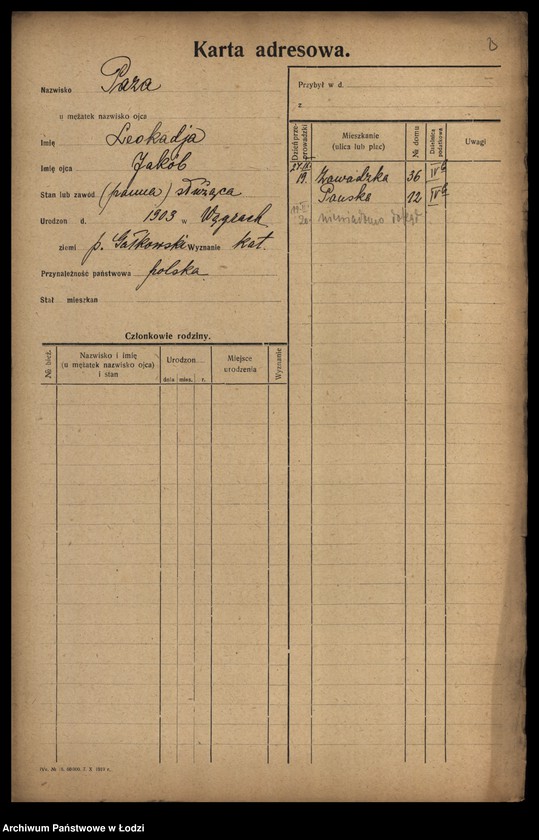 Karta adresowa.
Nazwisko Paza
u mężatek nazwisko ojca
Imię Leokadja
Imię ojca Jakób
Stan lub zawód (panna) służąca
Urodzon d. 1903 w
ziemi p. Gałkowski Wyznanie kat.
Przynależność państwowa polska
Stał mieszkan
Członkowie rodziny.
№ bież. Nazwisko i imię (u mężatek nazwisko ojca) i stan Urodzon Miejsce urodzenia Wyznanie
data mies. r.
Przybył w d.
z
Dzień przeprowadzki Mieszkanie (ulica lub plac) № domu Dzielnica podatkowa Uwagi
19. Zawadzka 36 IV b
Pańska 12 IV b
20 niewiadomo dokąd
Archiwum Państwowe w Łodzi